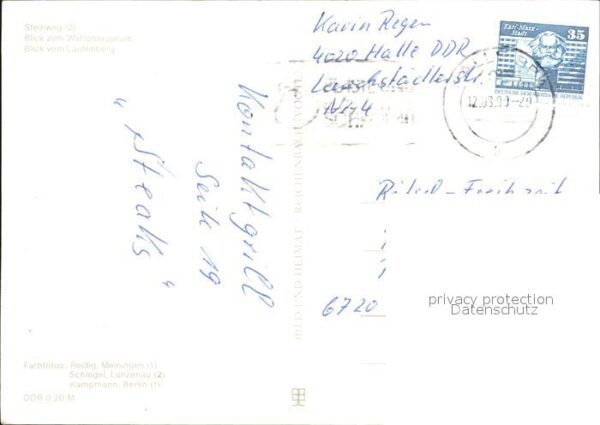 Steinweg (2)
Blick zum Waffenmuseum
Blick vom Lautenberg
Karin Regen
4020 Halle DDR
Lauchstädterstr.
Nr. 4
Karl-Marx-Stadt
35
DEUTSCHE DEMOKRATISCHE REPUBLIK
12.03.90-20
Rätsel-Freizeit
6720
Kontaktgrill
Seite 19
"Steaks"
BILD UND HEIMAT REICHENBACH (VOGTL)
privacy protection
Datenschutz
Farbfotos: Reißig, Meiningen (1)
Schlegel, Lunzenau (2)
Kampmann, Berlin (1)
DDR 0,20 M